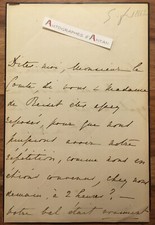 AUTOGRAPHES D'ANTAN
5
Dites moi, Monsieur le
Comte si vous & madame
de
reposés, pour que nous
puissions avoir notre
répétition, comme nous en
étions convenus, chez nous
demain, à 2 heures? —
notre bal étant